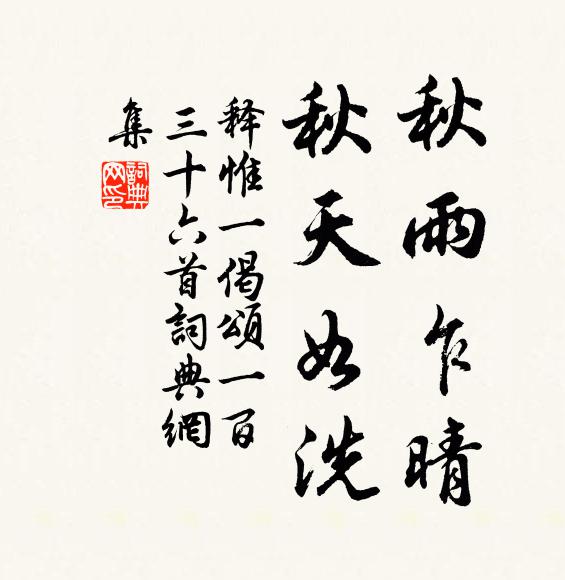 秋雨乍晴
秋天如洗
释惟一偈頌一百
三十六首詞典網
集
詞典
网印